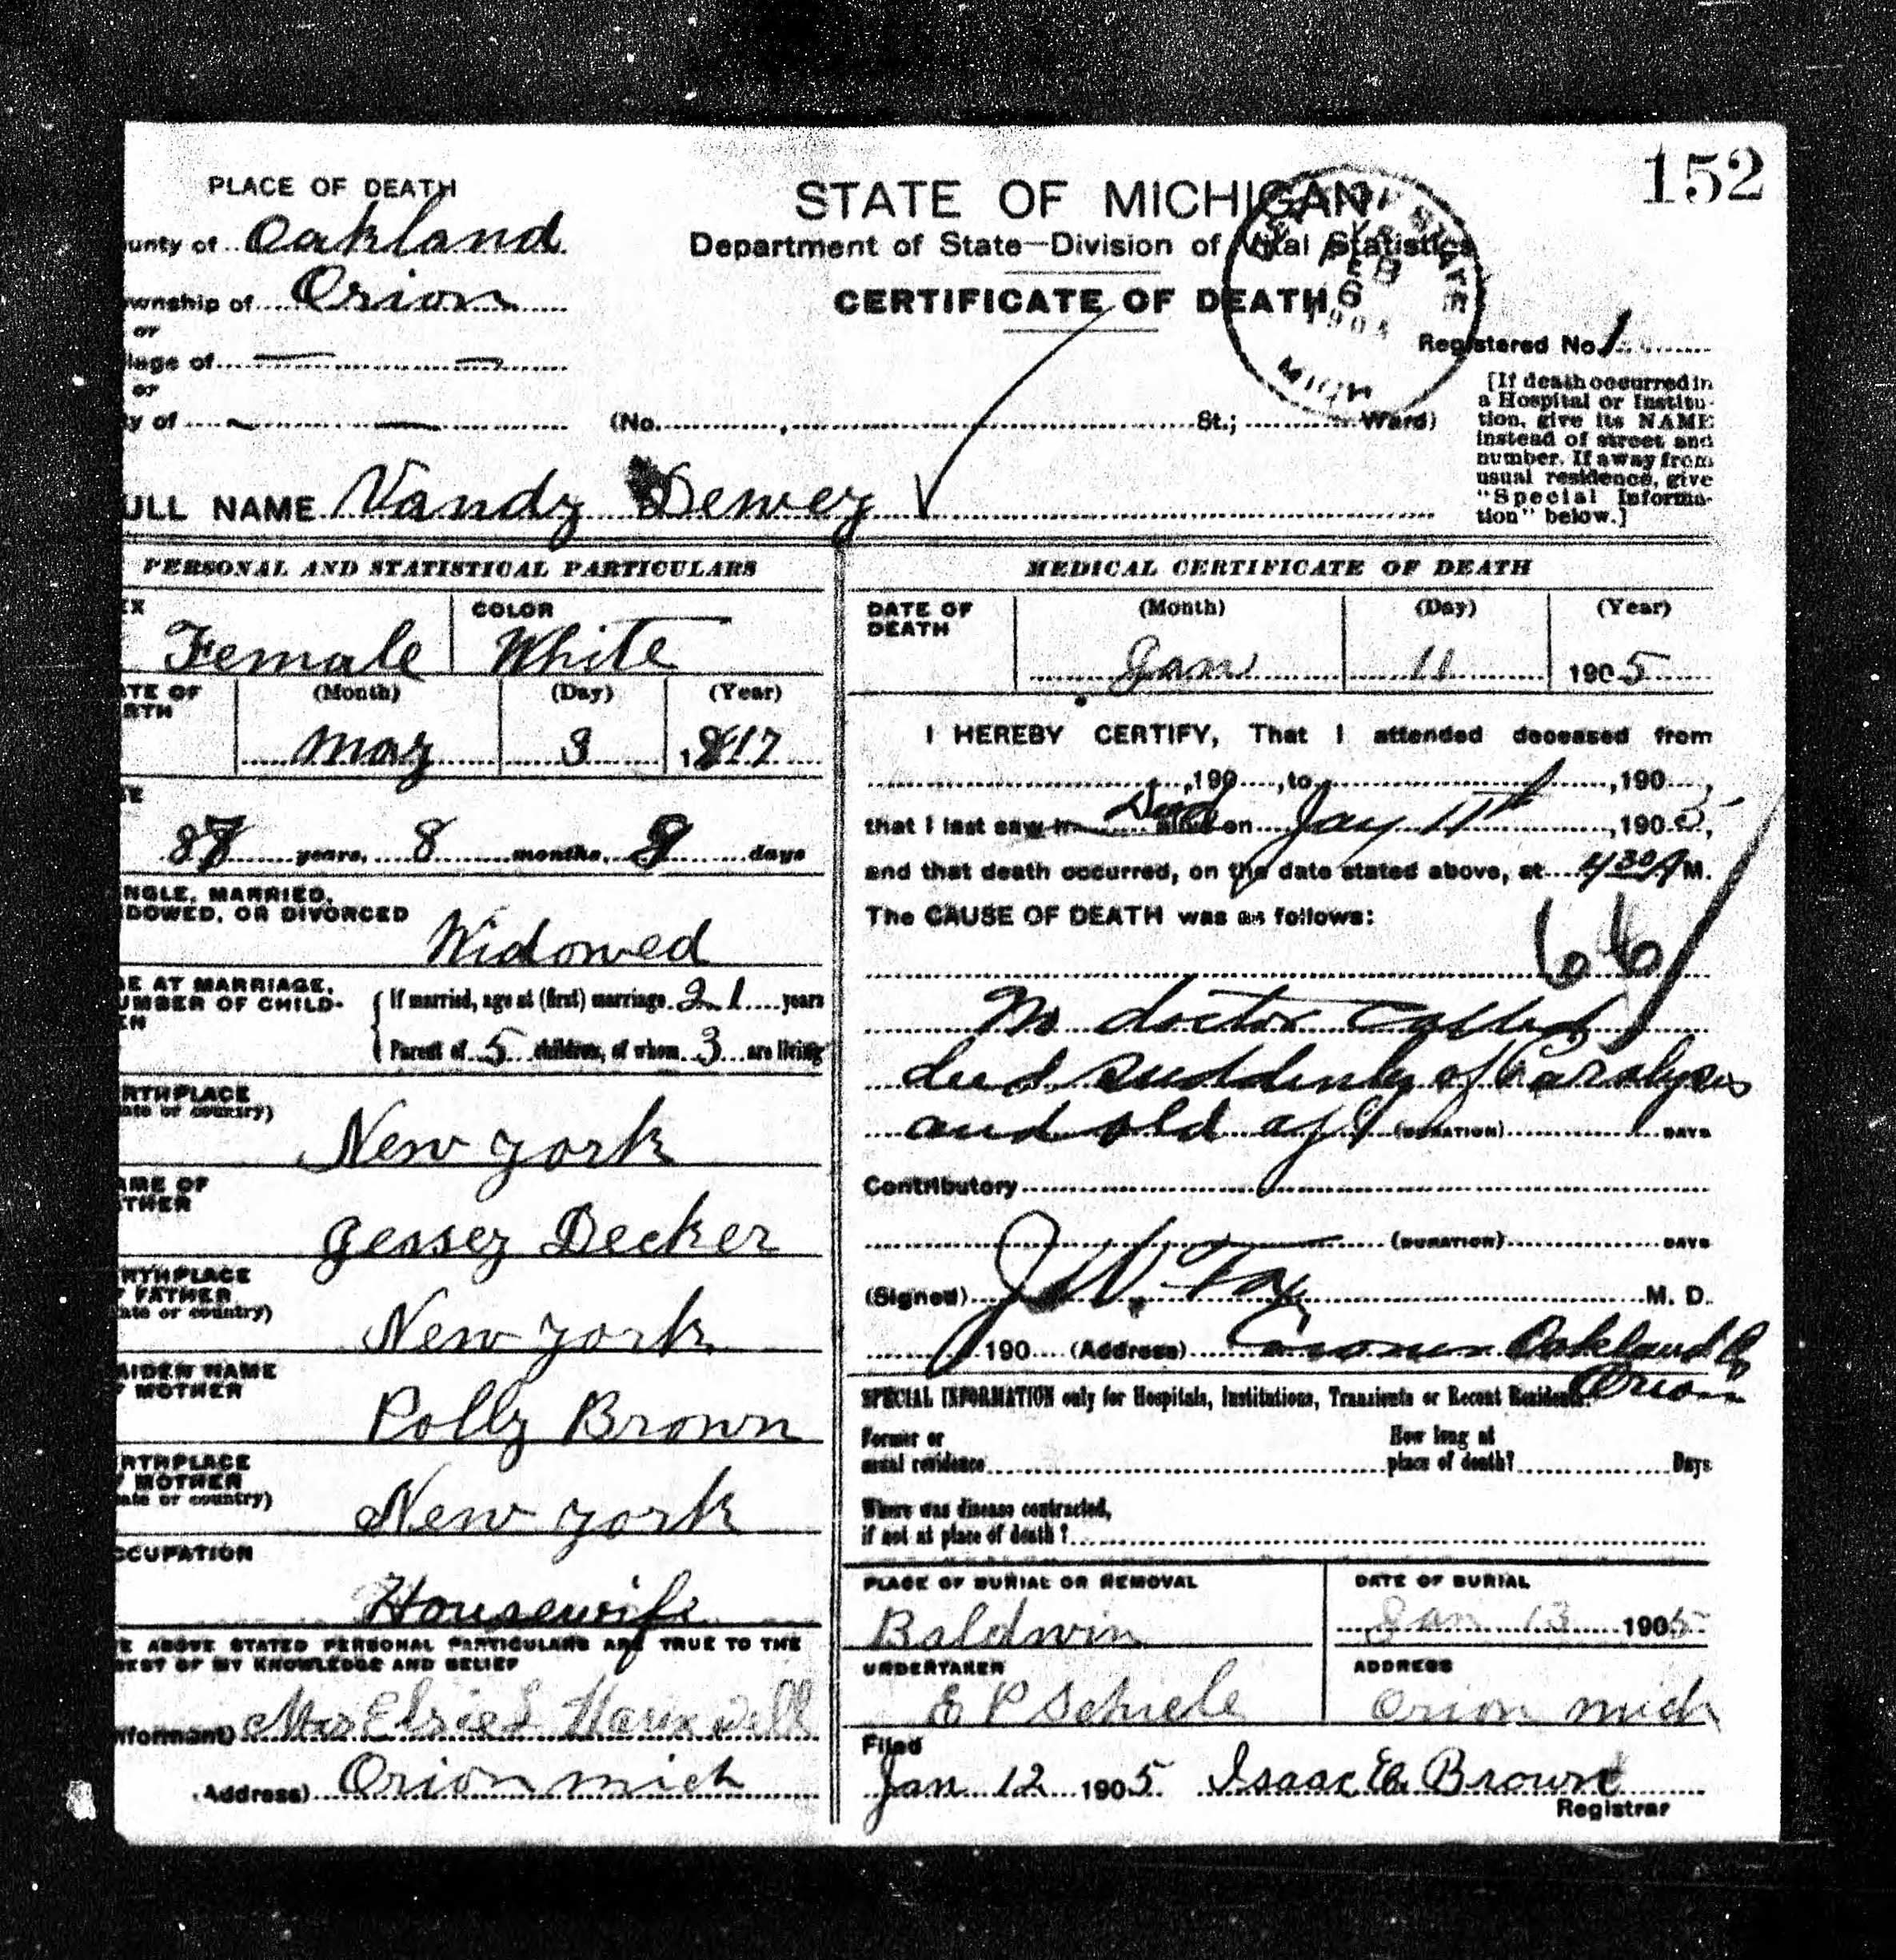 152
PLACE OF DEATH
unty of Oakland
wnship of Orion
or
llage of
or
y of
STATE OF MICHIGAN
Department of State—Division of Vital Statistics
CERTIFICATE OF DEATH
FEB
6
MICH
Registered No. 1
(No. , St.; Ward)
[If death occurred in
a Hospital or Institu-
tion, give its NAME
instead of street and
number. If away from
usual residence, give
"Special Informa-
tion" below.]
ULL NAME Vandy Dewey
PERSONAL AND STATISTICAL PARTICULARS
EX
Female
COLOR
White
ATE OF
RTH
(Month) (Day) (Year)
May 3 1817
E
87 years, 8 months, 9 days
NGLE, MARRIED,
DOWED, OR DIVORCED
Widowed
E AT MARRIAGE,
UMBER OF CHILD-
EN
If married, age at (first) marriage 21 years
Parent of 5 children, of whom 3 are living
RTHPLACE
ate or country)
New York
AME OF
THER
Jessey Decker
RTHPLACE
F FATHER
ate or country)
New York
AIDEN NAME
F MOTHER
Polly Brown
RTHPLACE
F MOTHER
ate or country)
New York
CCUPATION
Housewife
E ABOVE STATED PERSONAL PARTICULARS ARE TRUE TO THE
BEST OF MY KNOWLEDGE AND BELIEF
nformant) Mrs Elsie L
Address) Orion Mich
MEDICAL CERTIFICATE OF DEATH
DATE OF
DEATH
(Month) (Day) (Year)
Jan 11 1905
I HEREBY CERTIFY, That I attended deceased from
, 190 , to , 190 ,
that I last saw h Dead alive on Jay 11th, 1905,
and that death occurred, on the date stated above, at 4 30 A M.
The CAUSE OF DEATH was as follows:
66
No doctor called
died suddenly of Paralysis
and old age (DURATION) DAYS
Contributory
(DURATION) DAYS
(Signed) J W Fox M. D.
190 (Address) Coroner Oakland Co
Orion
SPECIAL INFORMATION only for Hospitals, Institutions, Transients or Recent Residents.
Former or
usual residence
How long at
place of death? Days
Where was disease contracted,
if not at place of death?
PLACE OF BURIAL OR REMOVAL
Baldwin
DATE OF BURIAL
Jan 13 1905
UNDERTAKER
E P Schiele
ADDRESS
Orion Mich
Filed
Jan 12 1905 Isaac E. Brown
Registrar